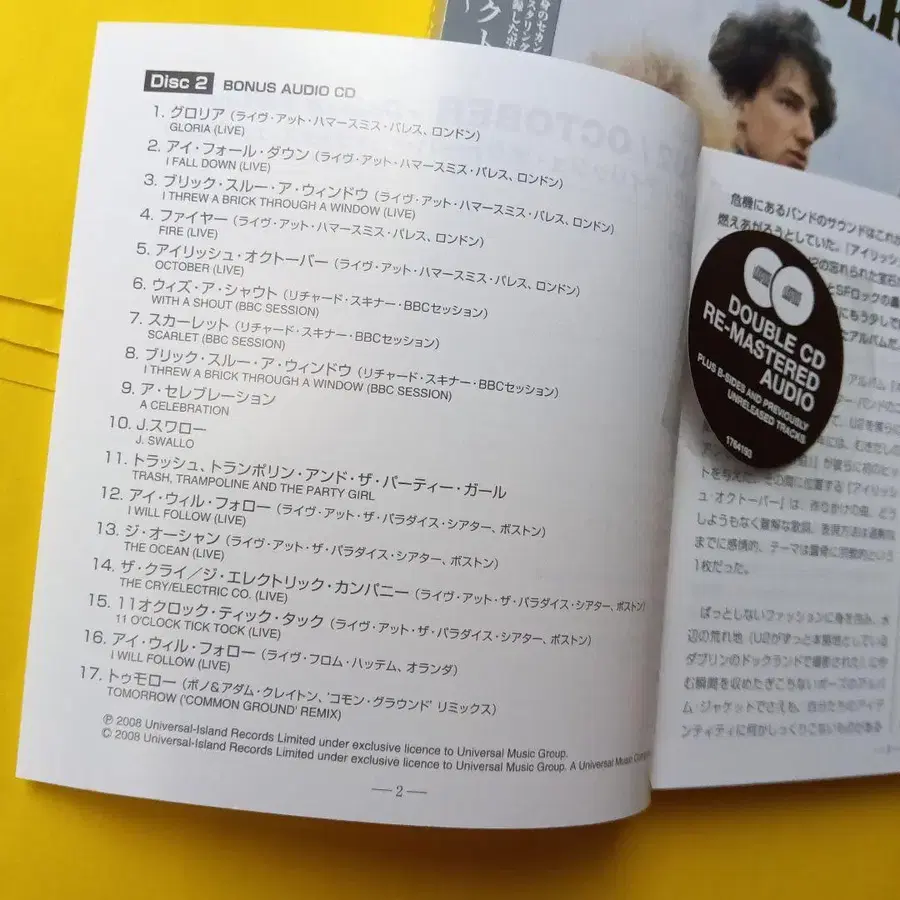 Disc 2 BONUS AUDIO CD
1. グロリア (ライヴ・アット・ハマースミス・パレス、ロンドン)
GLORIA (LIVE)
2. アイ・フォール・ダウン (ライヴ・アット・ハマースミス・パレス、ロンドン)
I FALL DOWN (LIVE)
3. ブリック・スルー・ア・ウィンドウ (ライヴ・アット・ハマースミス・パレス、ロンドン)
I THREW A BRICK THROUGH A WINDOW (LIVE)
4. ファイヤー (ライヴ・アット・ハマースミス・パレス、ロンドン)
FIRE (LIVE)
5. アイリッシュ・オクトーバー (ライヴ・アット・ハマースミス・パレス、ロンドン)
OCTOBER (LIVE)
6. ウィズ・ア・シャウト (リチャード・スキナー・BBCセッション)
WITH A SHOUT (BBC SESSION)
7. スカーレット (リチャード・スキナー・BBCセッション)
SCARLET (BBC SESSION)
8. ブリック・スルー・ア・ウィンドウ (リチャード・スキナー・BBCセッション)
I THREW A BRICK THROUGH A WINDOW (BBC SESSION)
9. ア・セレブレーション
A CELEBRATION
10. J.スワロー
J. SWALLO
11. トラッシュ、トランポリン・アンド・ザ・パーティー・ガール
TRASH, TRAMPOLINE AND THE PARTY GIRL
12. アイ・ウィル・フォロー (ライヴ・アット・ザ・パラダイス・シアター、ボストン)
I WILL FOLLOW (LIVE)
13. ジ・オーシャン (ライヴ・アット・ザ・パラダイス・シアター、ボストン)
THE OCEAN (LIVE)
14. ザ・クライ／ジ・エレクトリック・カンパニー (ライヴ・アット・ザ・パラダイス・シアター、ボストン)
THE CRY/ELECTRIC CO. (LIVE)
15. 11オクロック・ティック・タック (ライヴ・アット・ザ・パラダイス・シアター、ボストン)
11 O'CLOCK TICK TOCK (LIVE)
16. アイ・ウィル・フォロー (ライヴ・フロム・ハッテム、オランダ)
I WILL FOLLOW (LIVE)
17. トゥモロー (ボノ&アダム・クレイトン、'コモン・グラウンド' リミックス)
TOMORROW ('COMMON GROUND' REMIX)
℗ 2008 Universal-Island Records Limited under exclusive licence to Universal Music Group.
© 2008 Universal-Island Records Limited under exclusive licence to Universal Music Group. A Universal Music
— 2 —
危機にあるバンドのサウンドはこれか
燃えあがろうとしていた。『アイリッシ
の忘れられた宝石
とSFロックの
にもう少しで
たアルバムだ
DOUBLE CD
RE-MASTERED
AUDIO
PLUS B-SIDES AND PREVIOUSLY
UNRELEASED TRACKS
1764193
アルバム
ー・バンドの
て、U2を
には、むきだしの
が彼らに初のヒッ
トを与えた。その間に位置する『アイリッシ
ュ・オクトーバー』は、作りかけの曲、どう
しようもなく難解な歌詞、表現方法は過剰な
までに感情的、テーマは露骨に宗教的という
1枚だった。
ぱっとしないファッションに身を包み、水
辺の荒れ地 (U2がずっと本拠地としている
ダブリンのドックランドで撮影された) に佇
む瞬間を収めたぎこちないポーズのアルバ
ム・ジャケットでさえも、自分たちのアイデ
ンティティに何かしっくりこないものがある